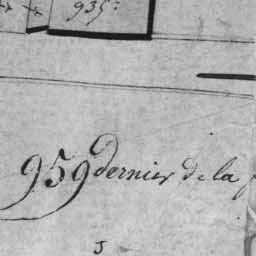 935:
959 dernier de la
J